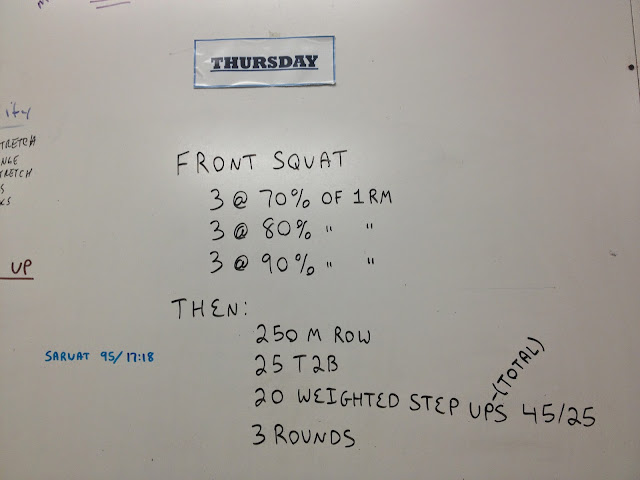 THURSDAY
ity
TRETCH
NGE
TRETCH
S
KS
UP
FRONT SQUAT
3 @ 70% OF 1RM
3 @ 80% " "
3 @ 90% " "
THEN:
250 M ROW
25 T2B
20 WEIGHTED STEP UPS -(TOTAL) 45/25
3 ROUNDS
SARVAT 95/17:18